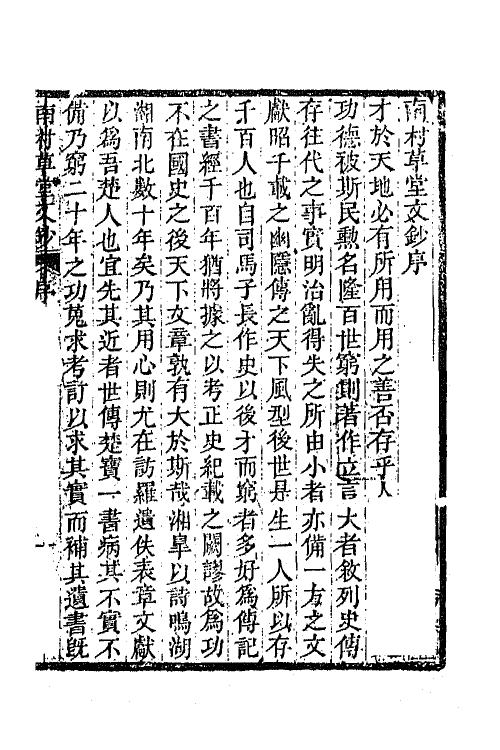 南村草堂文鈔序
才於天地必有所用而用之善否存乎人
功德被斯民勲名隆百世窮則著作立言大者敘列史傳
存往代之事實明治亂得失之所由小者亦備一方之文
獻昭千載之幽隱傳之天下風型後世是生一人所以存
千百人也自司馬子長作史以後才而窮者多好爲傳記
之書經千百年猶將據之以考正史紀載之闕謬故爲功
不在國史之後天下文章孰有大於斯哉湘臯以詩鳴湖
湖南北數十年矣乃其用心則尤在訪羅遺佚表章文獻
以爲吾楚人也宜先其近者世傳楚寶一書病其不實不
備乃窮二十年之功蒐求考訂以求其實而補其遺書旣
南村草堂文鈔 序 一